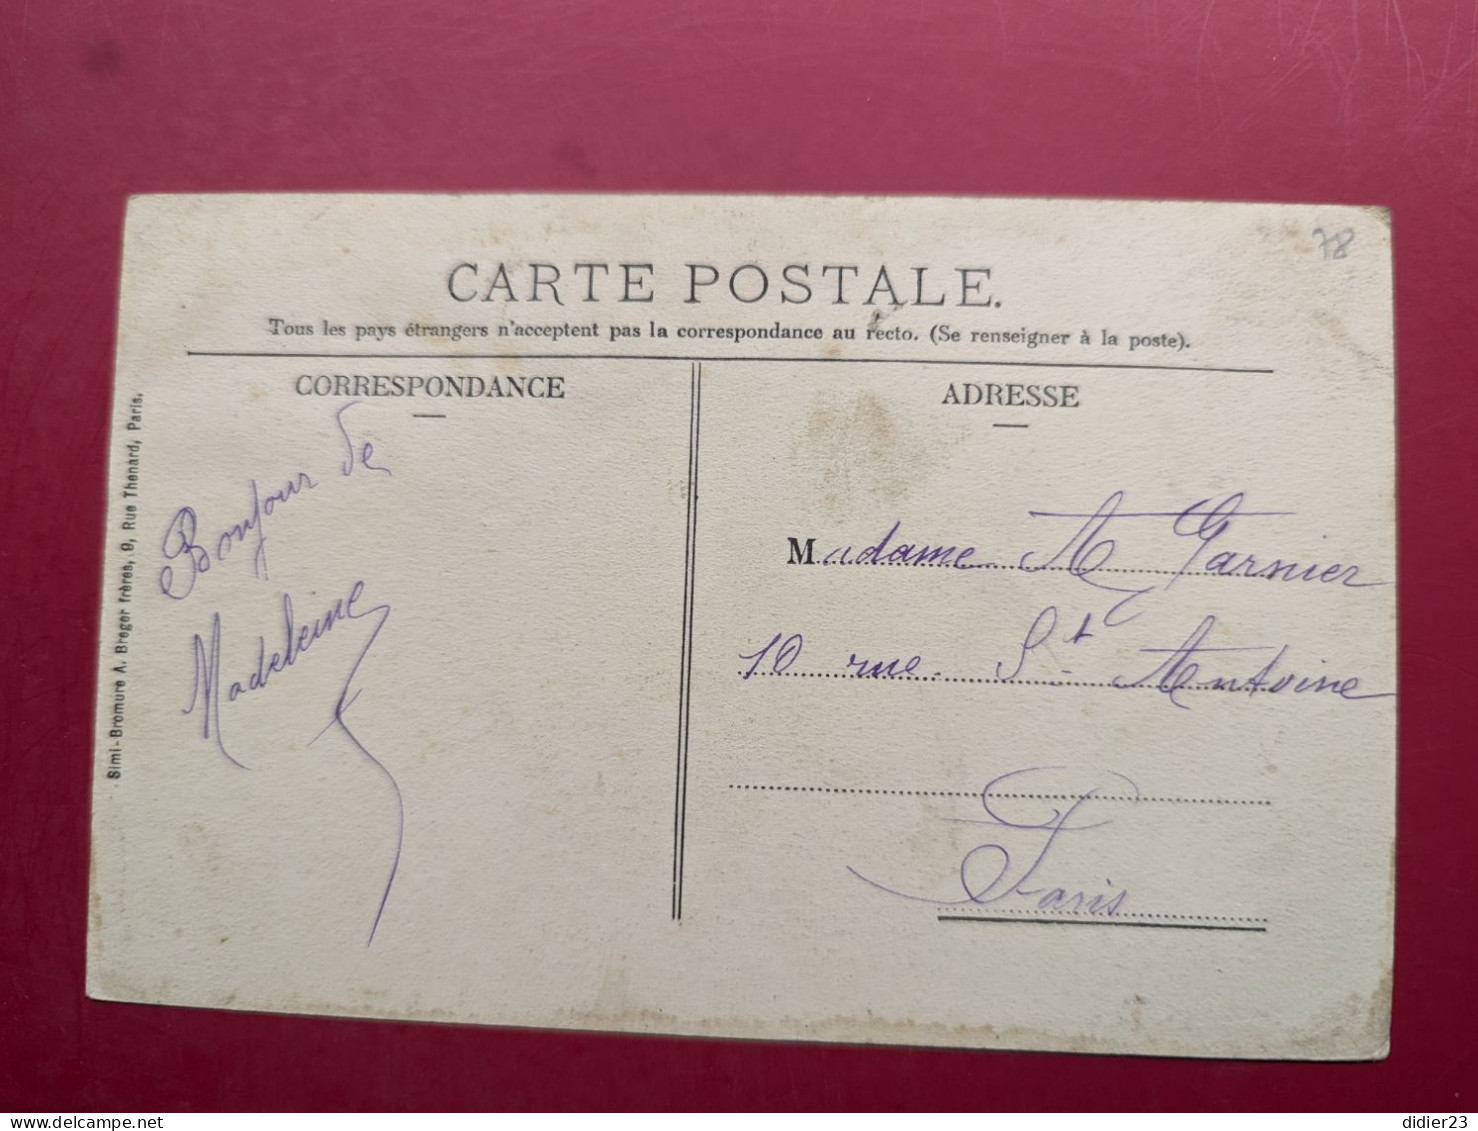 78
CARTE POSTALE.
Tous les pays étrangers n'acceptent pas la correspondance au recto. (Se renseigner à la poste).
CORRESPONDANCE
Bonjour de
Madeleine
ADRESSE
Madame A Garnier
10 rue St Antoine
Paris
Simi-Bromure A. Breger frères, 9, Rue Thenard, Paris.
www.delcampe.net
didier23